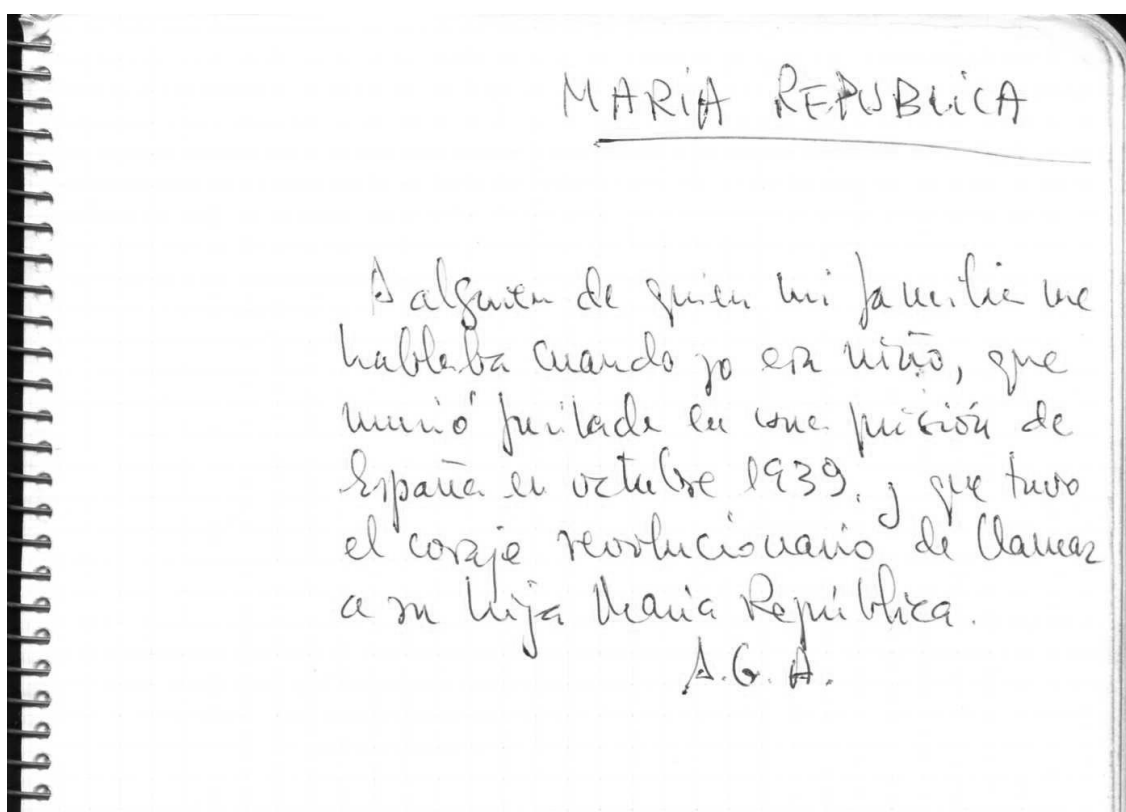 MARIA REPUBLICA
A alguien de quien mi familia me
hablaba cuando yo era niño, que
murió fusilado en una prisión de
España en octubre 1939, y que tuvo
el coraje revolucionario de llamar
a su hija María República.
A.G.A.